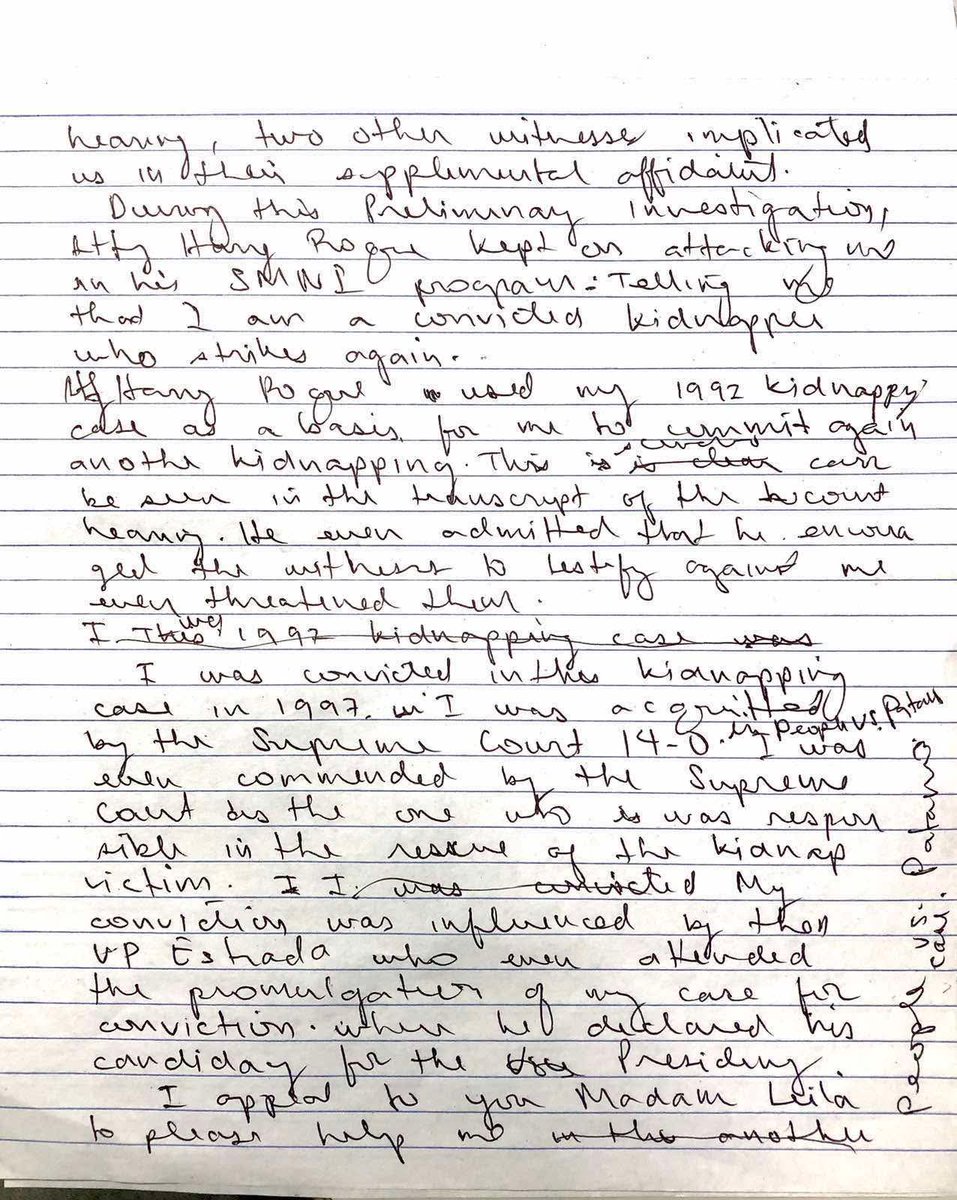 hearing, two other witnesses implicated
us in their supplemental affidavit.
During this Preliminary investigation,
Atty Harry Roque kept on attacking me
in his SMNI program. Telling
that I am a convicted kidnapper
who strikes again.
Atty Harry Roque used my 1992 kidnapping
case as a basis for me to commit again
anothe kidnapping. This is is clear can
be seen in the transcript of the court
hearing. He even admitted that he encoura
ged the witness to testify against me
even threatened them.
I This 1992 kidnapping case was
I was convicted in this kidnapping
case in 1997. I was acquitted
by the Supreme Court 14-0. in People vs. Patano I was
even commended by the Supreme
Court as the one who is was respon
sible in the rescue of the kidnap
victim. I I was convicted My
conviction was influenced by then
VP Estrada who even attended
the promulgation of my case for
conviction. when he declared his
candiday for the Presidency.
I appeal to you Madam Leila
to please help me in the anothe
People vs. Patano case.